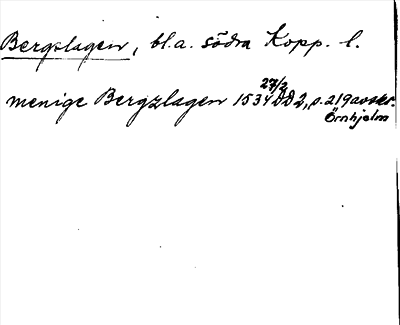 Bergslagen, bl.a. södra Kopp. l.
menige Bergzlagen 1534 27/2 DD2, s. 219 avskr.
Örnhjelm